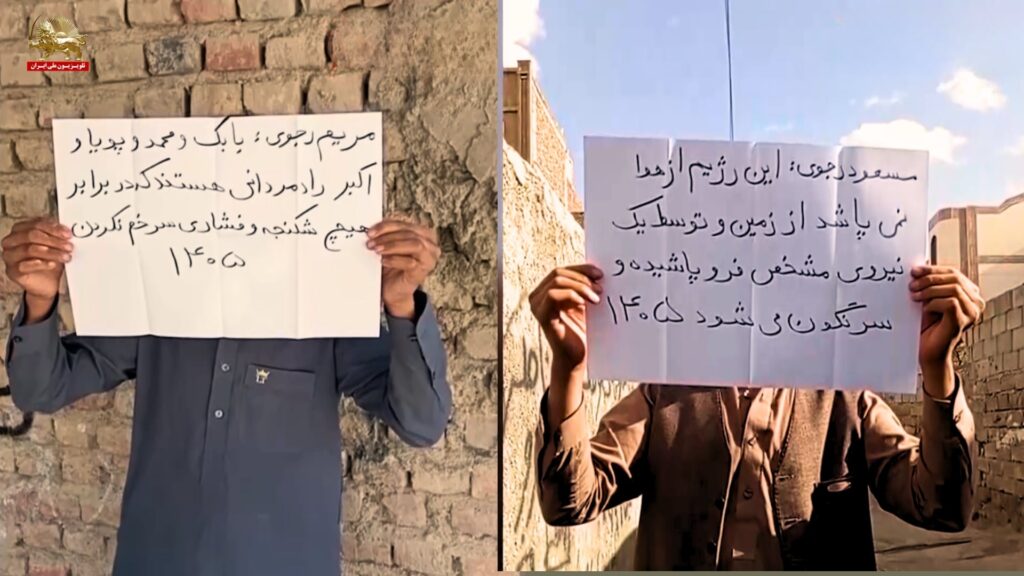 تلویزیون ملی ایران
مریم رجوی: بابک و محمد و پویا و
اکبر رادمردانی هستند که در برابر
هیچ شکنجه و فشاری سر خم نکردن
۱۴۰۵
مسعود رجوی: این رژیم از هوا
نمی پاشد از زمین و توسط یک
نیروی مشخص فرو پاشیده و
سرنگون می شود ۱۴۰۵